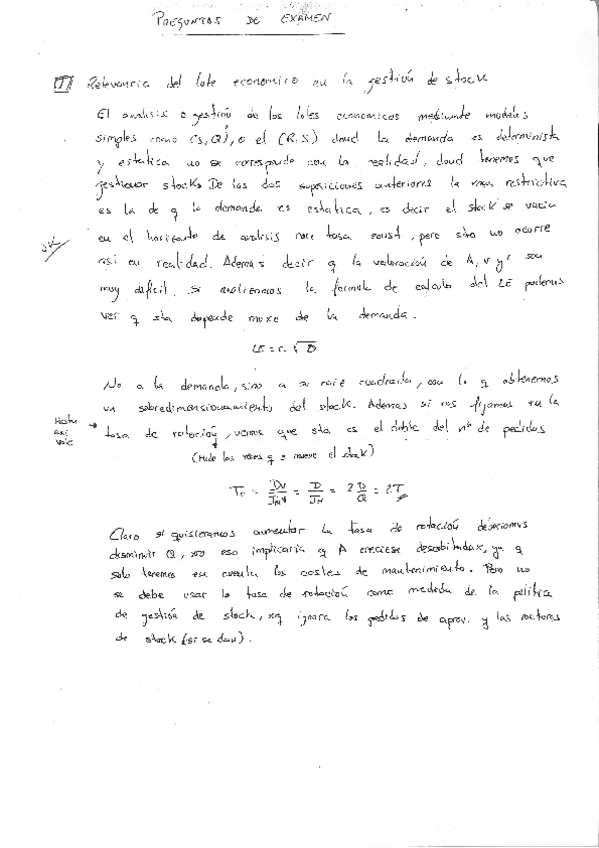 PREGUNTAS DE EXAMEN
1) Relevancia del lote economico en la gestión de stock
El analisis o gestión de los lotes economicos mediante modelos
simples como (s,Q), o el (R,S) dond la demanda es determinista
y estatica no se corresponde con la realidad, dond tenemos que
gestionar stocks. De las dos suposiciones anteriores la mas restrictiva
es la de q la demanda es estatica, es decir el stock se vacia
en el horizonte de analisis tasa const, pero sto no ocurre
asi en realidad. Ademas decir q la valoración de A, v y r son
muy dificil. Si analizamos la formula de calculo del LE podemos
ver q sta depende de la demanda.
LE = c. √D
No a la demanda, sino a su raiz cuadrada, con lo q obtenemos
un sobredimensionamiento del stock. Ademas si nos fijamos en la
Hasta
aqi
vale
tasa de rotación, vemos que sta es el doble del nº de pedidos
(Mide las veces q s mueve el stock)
= D = 2 D/Q = 2.T
Claro si quisieramos aumentar la tasa de rotación deberiamos
disminuir Q, xo eso implicaria q A creciese, ya q
solo tenemos en cuenta los costes de mantenimiento. Pero no
se debe usar la tasa de rotación como medida de la politica
de gestión de stock, xq ignora los pedidos de aprov. y las roturas
de stock (si se dan).